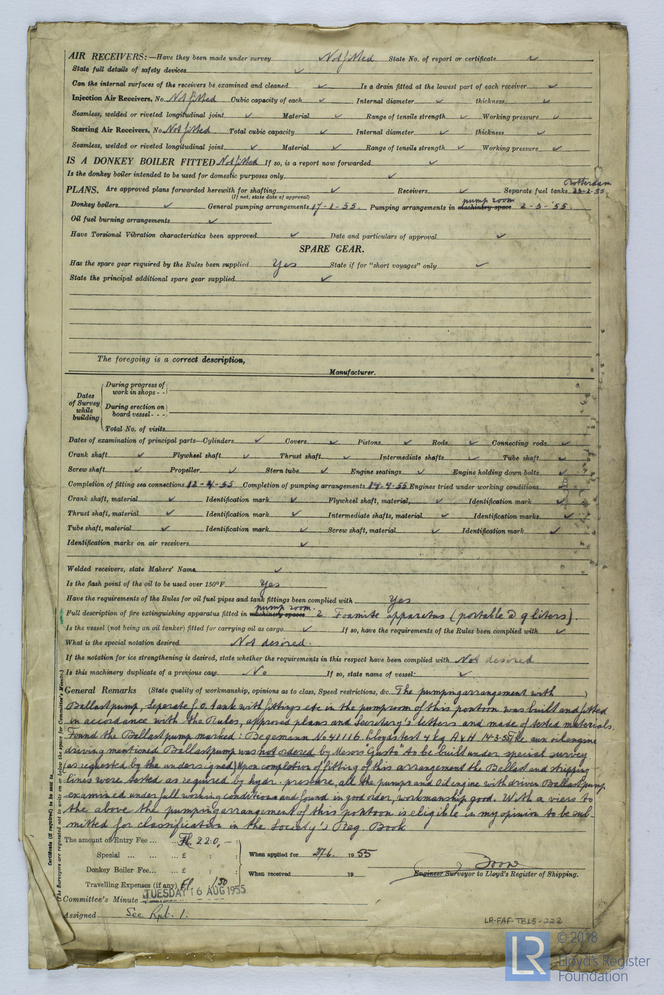 AIR RECEIVERS:—Have they been made under survey Not fitted State No. of report or certificate ✓
State full details of safety devices ✓
Can the internal surfaces of the receivers be examined and cleaned ✓ Is a drain fitted at the lowest part of each receiver ✓
Injection Air Receivers, No. Not fitted Cubic capacity of each ✓ Internal diameter ✓ thickness ✓
Seamless, welded or riveted longitudinal joint ✓ Material ✓ Range of tensile strength ✓ Working pressure ✓
Starting Air Receivers, No. Not fitted Total cubic capacity ✓ Internal diameter ✓ thickness ✓
Seamless, welded or riveted longitudinal joint ✓ Material ✓ Range of tensile strength ✓ Working pressure ✓
IS A DONKEY BOILER FITTED Not fitted If so, is a report now forwarded ✓
Is the donkey boiler intended to be used for domestic purposes only ✓
Rotterdam
PLANS. Are approved plans forwarded herewith for shafting ✓ Receivers ✓ Separate fuel tanks 23-2-55
(If not, state date of approval)
pump room
Donkey boilers ✓ General pumping arrangements 17-1-55 Pumping arrangements in machinery space 2-3-'55
Oil fuel burning arrangements ✓
Have Torsional Vibration characteristics been approved ✓ Date and particulars of approval ✓
SPARE GEAR.
Has the spare gear required by the Rules been supplied Yes State if for "short voyages" only ✓
State the principal additional spare gear supplied ✓
The foregoing is a correct description,
Manufacturer.
Dates of Survey while building
During progress of work in shops - -
During erection on board vessel - - -
Total No. of visits
Dates of examination of principal parts—Cylinders ✓ Covers ✓ Pistons ✓ Rods ✓ Connecting rods ✓
Crank shaft ✓ Flywheel shaft ✓ Thrust shaft ✓ Intermediate shafts ✓ Tube shaft ✓
Screw shaft ✓ Propeller ✓ Stern tube ✓ Engine seatings ✓ Engine holding down bolts ✓
Completion of fitting sea connections 12-4-55 Completion of pumping arrangements 19-4-55 Engines tried under working conditions
Crank shaft, material ✓ Identification mark ✓ Flywheel shaft, material ✓ Identification mark ✓
Thrust shaft, material ✓ Identification mark ✓ Intermediate shafts, material ✓ Identification marks ✓
Tube shaft, material ✓ Identification mark ✓ Screw shaft, material ✓ Identification mark ✓
Identification marks on air receivers ✓
Welded receivers, state Makers' Name ✓
Is the flash point of the oil to be used over 150°F Yes
Have the requirements of the Rules for oil fuel pipes and tank fittings been complied with Yes
pump room
Full description of fire extinguishing apparatus fitted in machinery spaces 2 Foamite apparatus (portable à 9 liters).
Is the vessel (not being an oil tanker) fitted for carrying oil as cargo ✓ If so, have the requirements of the Rules been complied with ✓
What is the special notation desired Not desired.
If the notation for ice strengthening is desired, state whether the requirements in this respect have been complied with Not desired
Is this machinery duplicate of a previous case No If so, state name of vessel ✓
General Remarks (State quality of workmanship, opinions as to class, Speed restrictions, &c. The pumping arrangement with
Ballastpump, Separate f.o. tank with fittings etc. in the pumproom of this pontoon was built and fitted
in accordance with the Rules, approved plans and Secretary's letters and made of tested materials.
Found the Ballastpump marked: Begemann No 41116. Lloyds test 4 kg AvH. 14-3-55. (The aux oil engine
driving mentioned Ballastpump was not ordered by Messrs "Gusto" to be build under special survey
as regested by the undersigned) Upon completion of fitting of this arrangement the Ballast and stripping
lines were tested as required by hydr. pressure, all the pumps and Oil engine with driven Ballastpump
examined under full working conditions and found in good order, workmanship good. With a view to
the above the pumping arrangement of this pontoon is eligible in my opinion to be sub-
mitted for classification in the Society's Reg. Book
The amount of Entry Fee ... Fl. 220,—
Special ... £ When applied for 27/6 1955
Donkey Boiler Fee... £
When received 19
Travelling Expenses (if any) Fl. /50
Engineer Surveyor to Lloyd's Register of Shipping.
Committee's Minute TUESDAY 16 AUG 1955
Assigned See Rpt. 1.
LR-FAF-TB15-222
Certificate (if required) to be sent to
(The Surveyors are requested not to write on or below the space for Committee's Minute.)
LR
© 2018
Lloyd's Register
Foundation